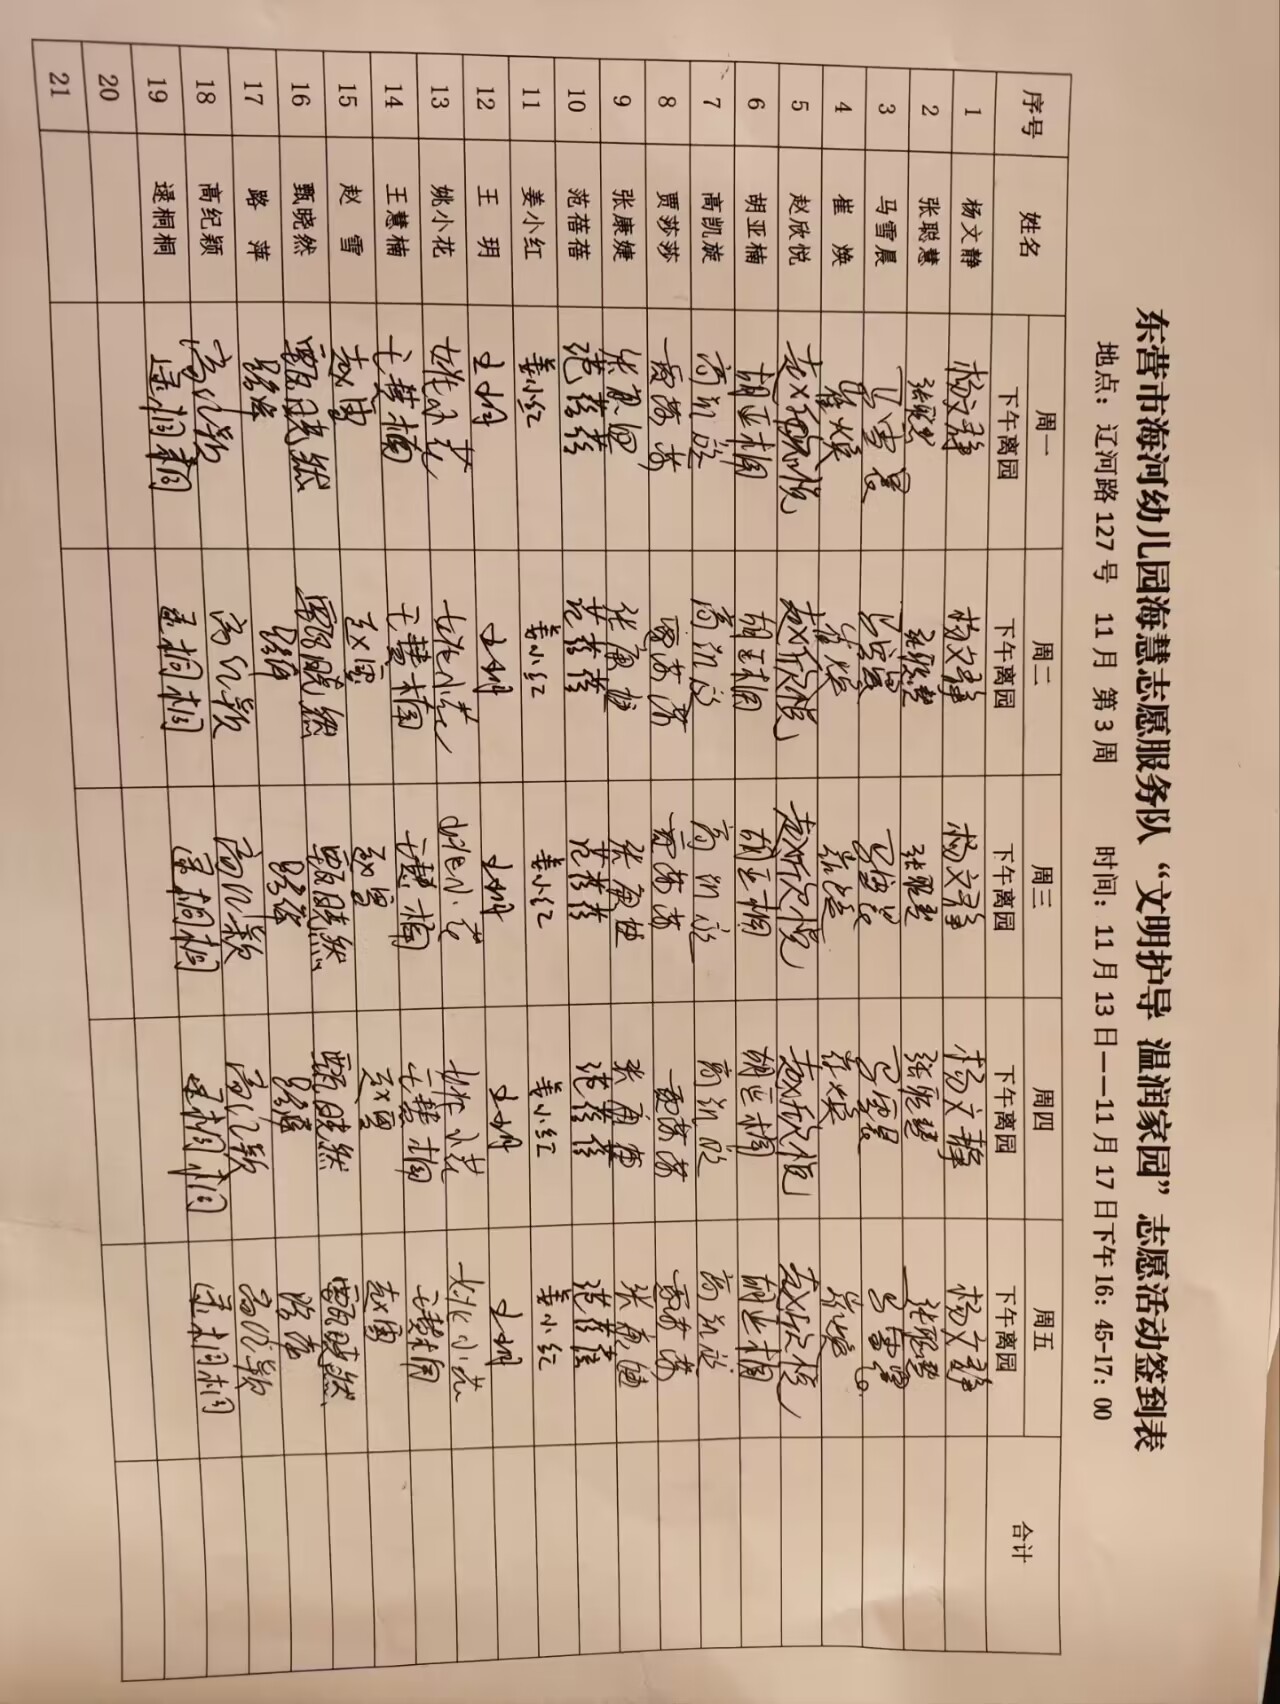 东营市海河幼儿园海慧志愿服务队“文明护导 温润家园”志愿活动签到表
地点：辽河路127号 11月 第3周 时间：11月13日——11月17日下午16：45-17：00
序号 姓名 周一 周二 周三 周四 周五 合计
下午离园 下午离园 下午离园 下午离园 下午离园
1 杨文静 杨文静 杨文静 杨文静 杨文静 杨文静
2 张聪慧 张聪慧 张聪慧 张聪慧 张聪慧 张聪慧
3 马雪晨 马雪晨 马雪晨 马雪晨 马雪晨 马雪晨
4 崔焕 崔焕 崔焕 崔焕 崔焕 崔焕
5 赵欣悦 赵欣悦 赵欣悦 赵欣悦 赵欣悦 赵欣悦
6 胡亚楠 胡亚楠 胡亚楠 胡亚楠 胡亚楠 胡亚楠
7 高凯旋 高凯旋 高凯旋 高凯旋 高凯旋 高凯旋
8 贾莎莎 贾莎莎 贾莎莎 贾莎莎 贾莎莎 贾莎莎
9 张康婕 张康婕 张康婕 张康婕 张康婕 张康婕
10 范蓓蓓 范蓓蓓 范蓓蓓 范蓓蓓 范蓓蓓 范蓓蓓
11 姜小红 姜小红 姜小红 姜小红 姜小红 姜小红
12 王玥 王玥 王玥 王玥 王玥 王玥
13 姚小花 姚小花 姚小花 姚小花 姚小花 姚小花
14 王慧楠 王慧楠 王慧楠 王慧楠 王慧楠 王慧楠
15 赵雪 赵雪 赵雪 赵雪 赵雪 赵雪
16 甄晓然 甄晓然 甄晓然 甄晓然 甄晓然 甄晓然
17 路萍 路萍 路萍 路萍 路萍 路萍
18 高纪颖 高纪颖 高纪颖 高纪颖 高纪颖 高纪颖
19 逯桐桐 逯桐桐 逯桐桐 逯桐桐 逯桐桐 逯桐桐
20
21